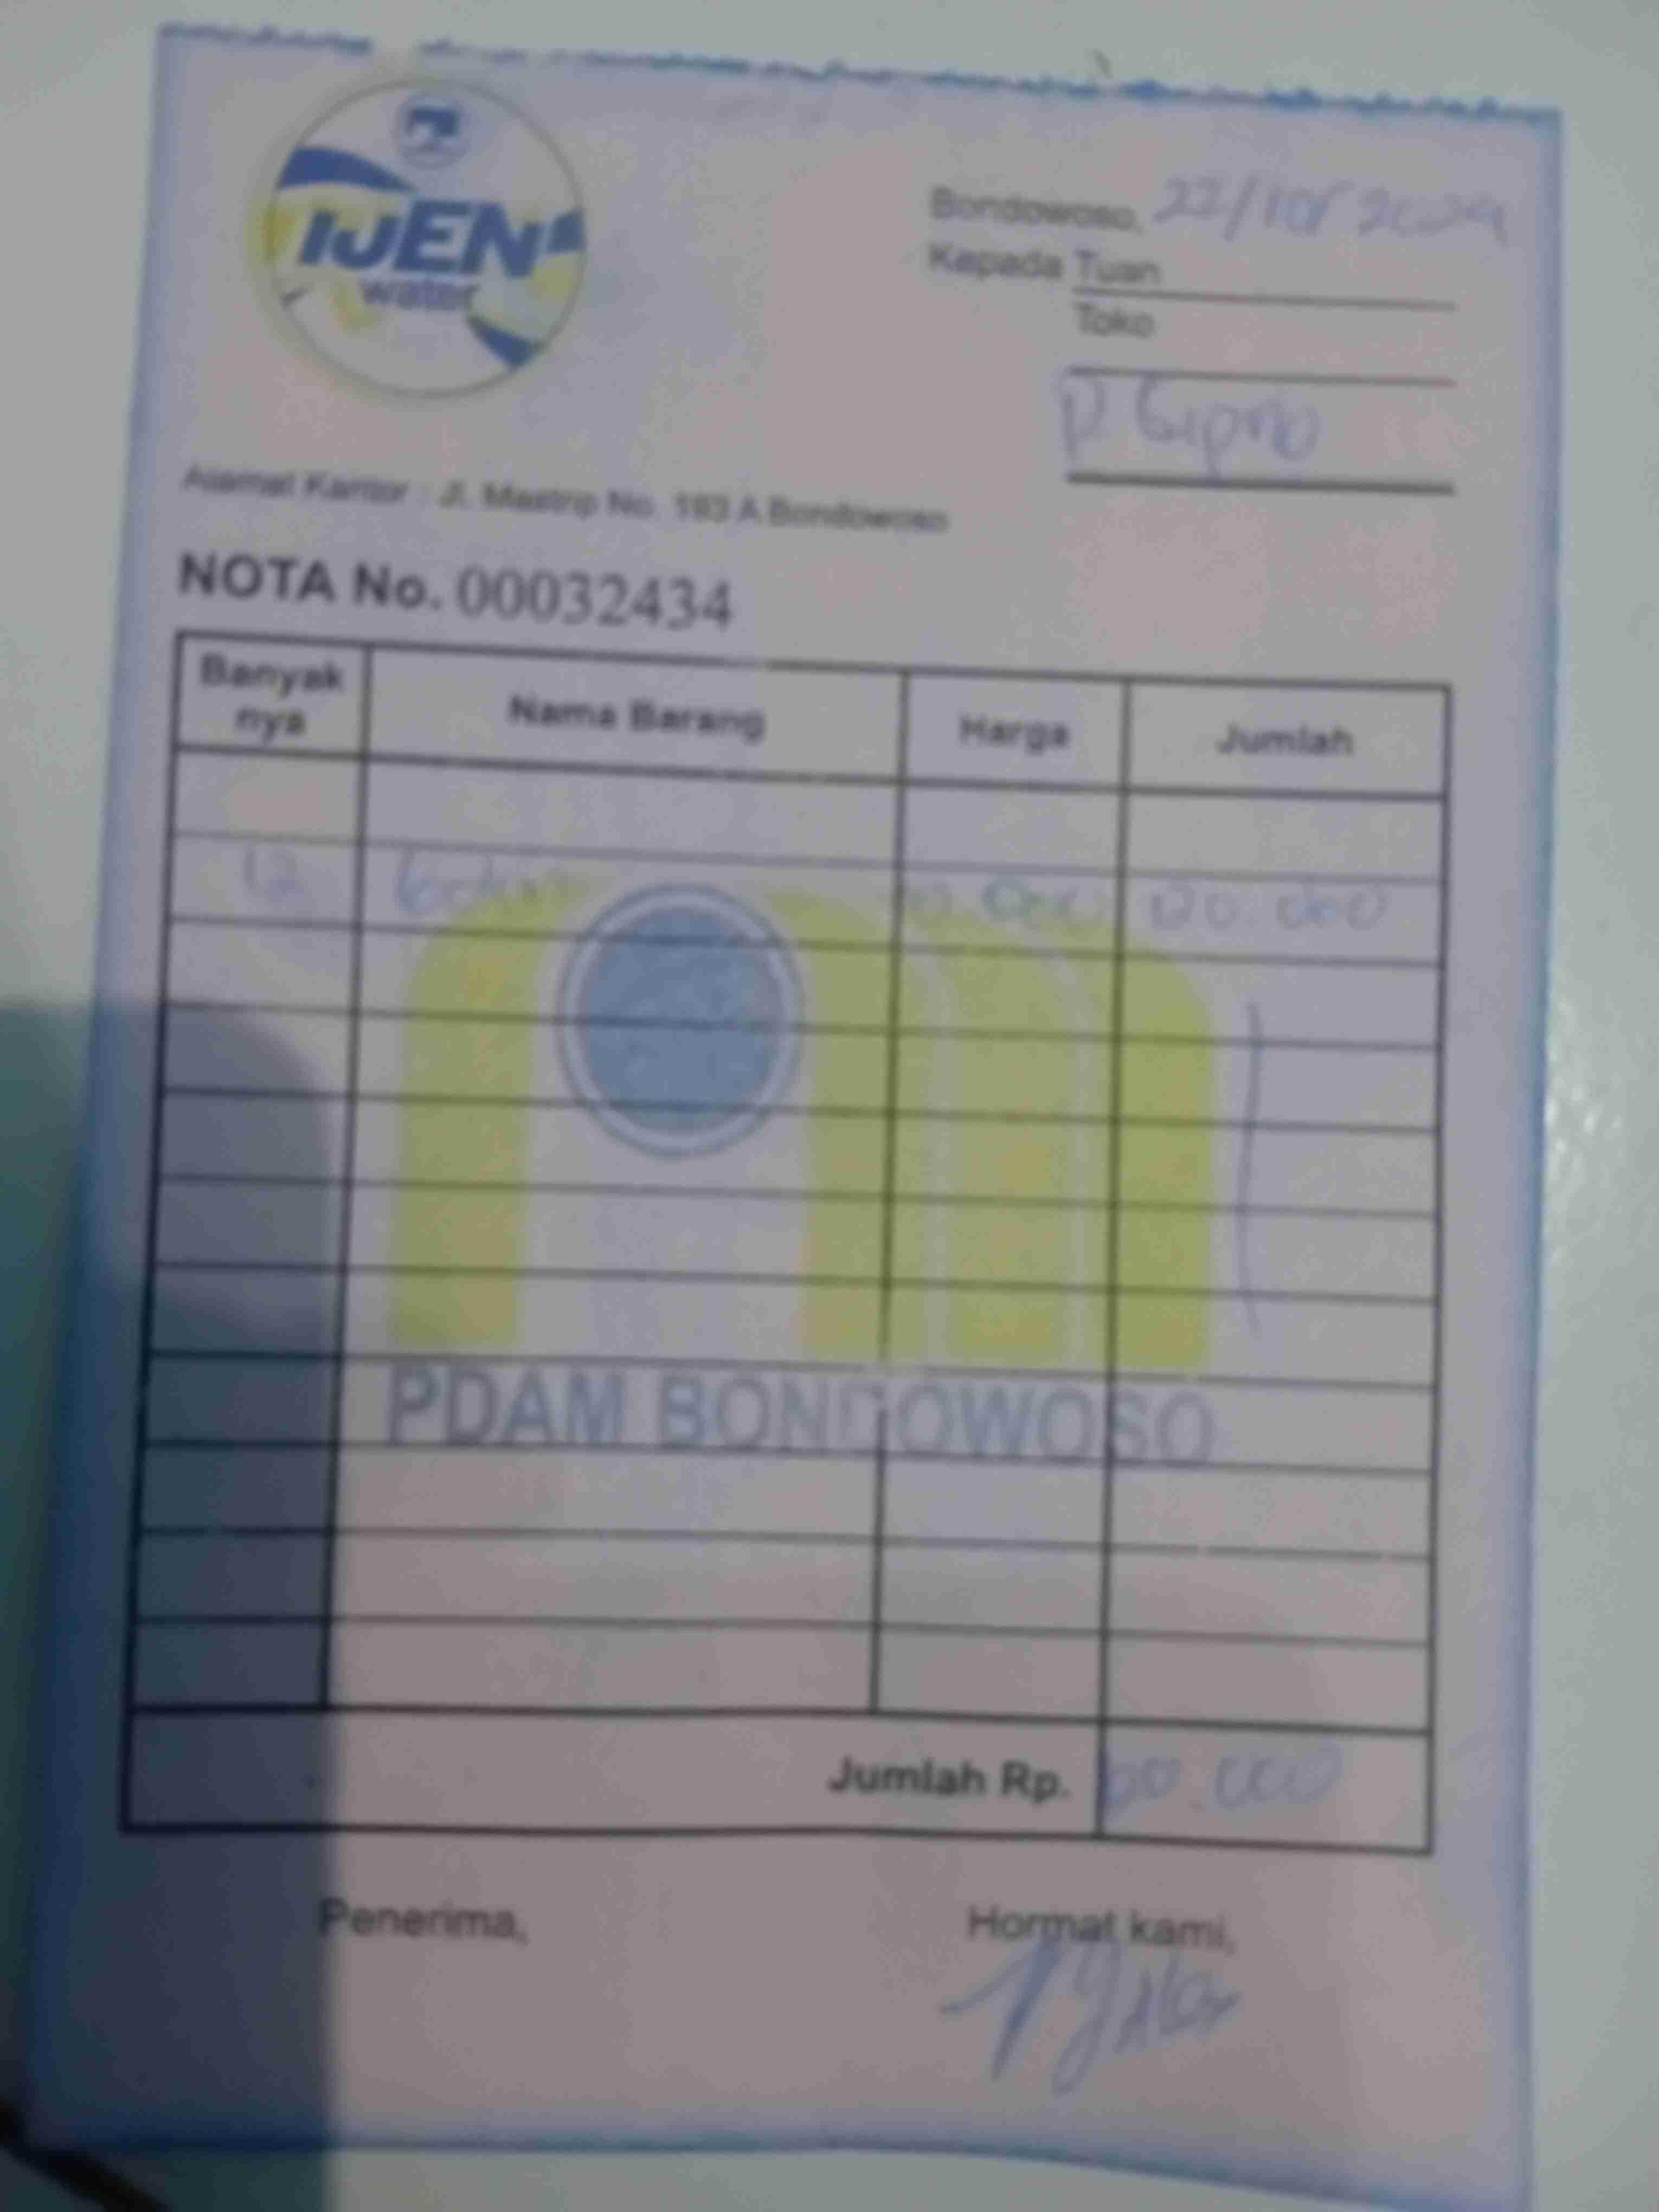 IJEN
water
Bondowoso, 22/10/2024
Kepada Tuan
Toko
Alamat Kantor : Jl. Mastrip No. 193 A Bondowoso
NOTA No. 00032434
Banyak nya Nama Barang Harga Jumlah
12 120.000
PDAM BONDOWOSO
Jumlah Rp.
Penerima, Hormat kami,